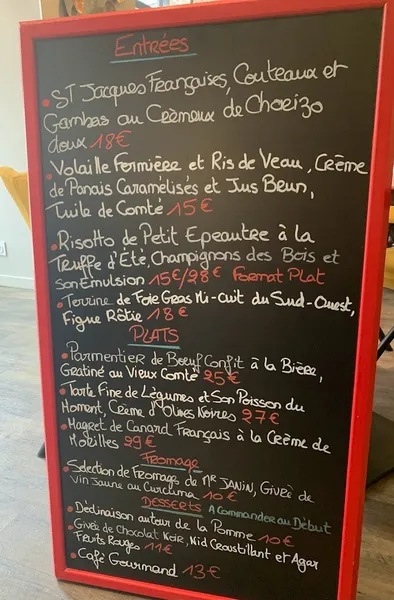 Entrées
• ST Jacques Françaises, Couteaux et
Gambas au Crèmeux de Chorizo
doux 18€
• Volaille Fermière et Ris de Veau, Crème
de Panais Caramélisés et Jus Brun,
Tuile de Comté 15€
• Risotto de Petit Epeautre à la
Truffe d'Eté, Champignons des Bois et
son Emulsion 15€/28€ Format Plat
• Terrine de Foie Gras Mi-cuit du Sud-Ouest,
Figue Rôtie 18€
PLATS
• Parmentier de Boeuf Confit à la Bière,
Gratiné au Vieux Comté 25€
• Tarte Fine de Légumes et Son Poisson du
Moment, Crème d'Olives Noires 27€
• Magret de Canard Français à la Crème de
Morilles 29€
Fromage
• Sélection de Fromage de Mr JANIN, Givré de
Vin Jaune au Curcuma 10€
DESSERTS A Commander au Début
• Déclinaison autour de la Pomme 10€
• Givré de Chocolat Noir, Nid Croustillant et Agar
Fruits Rouges 11€
• Café Gourmand 13€